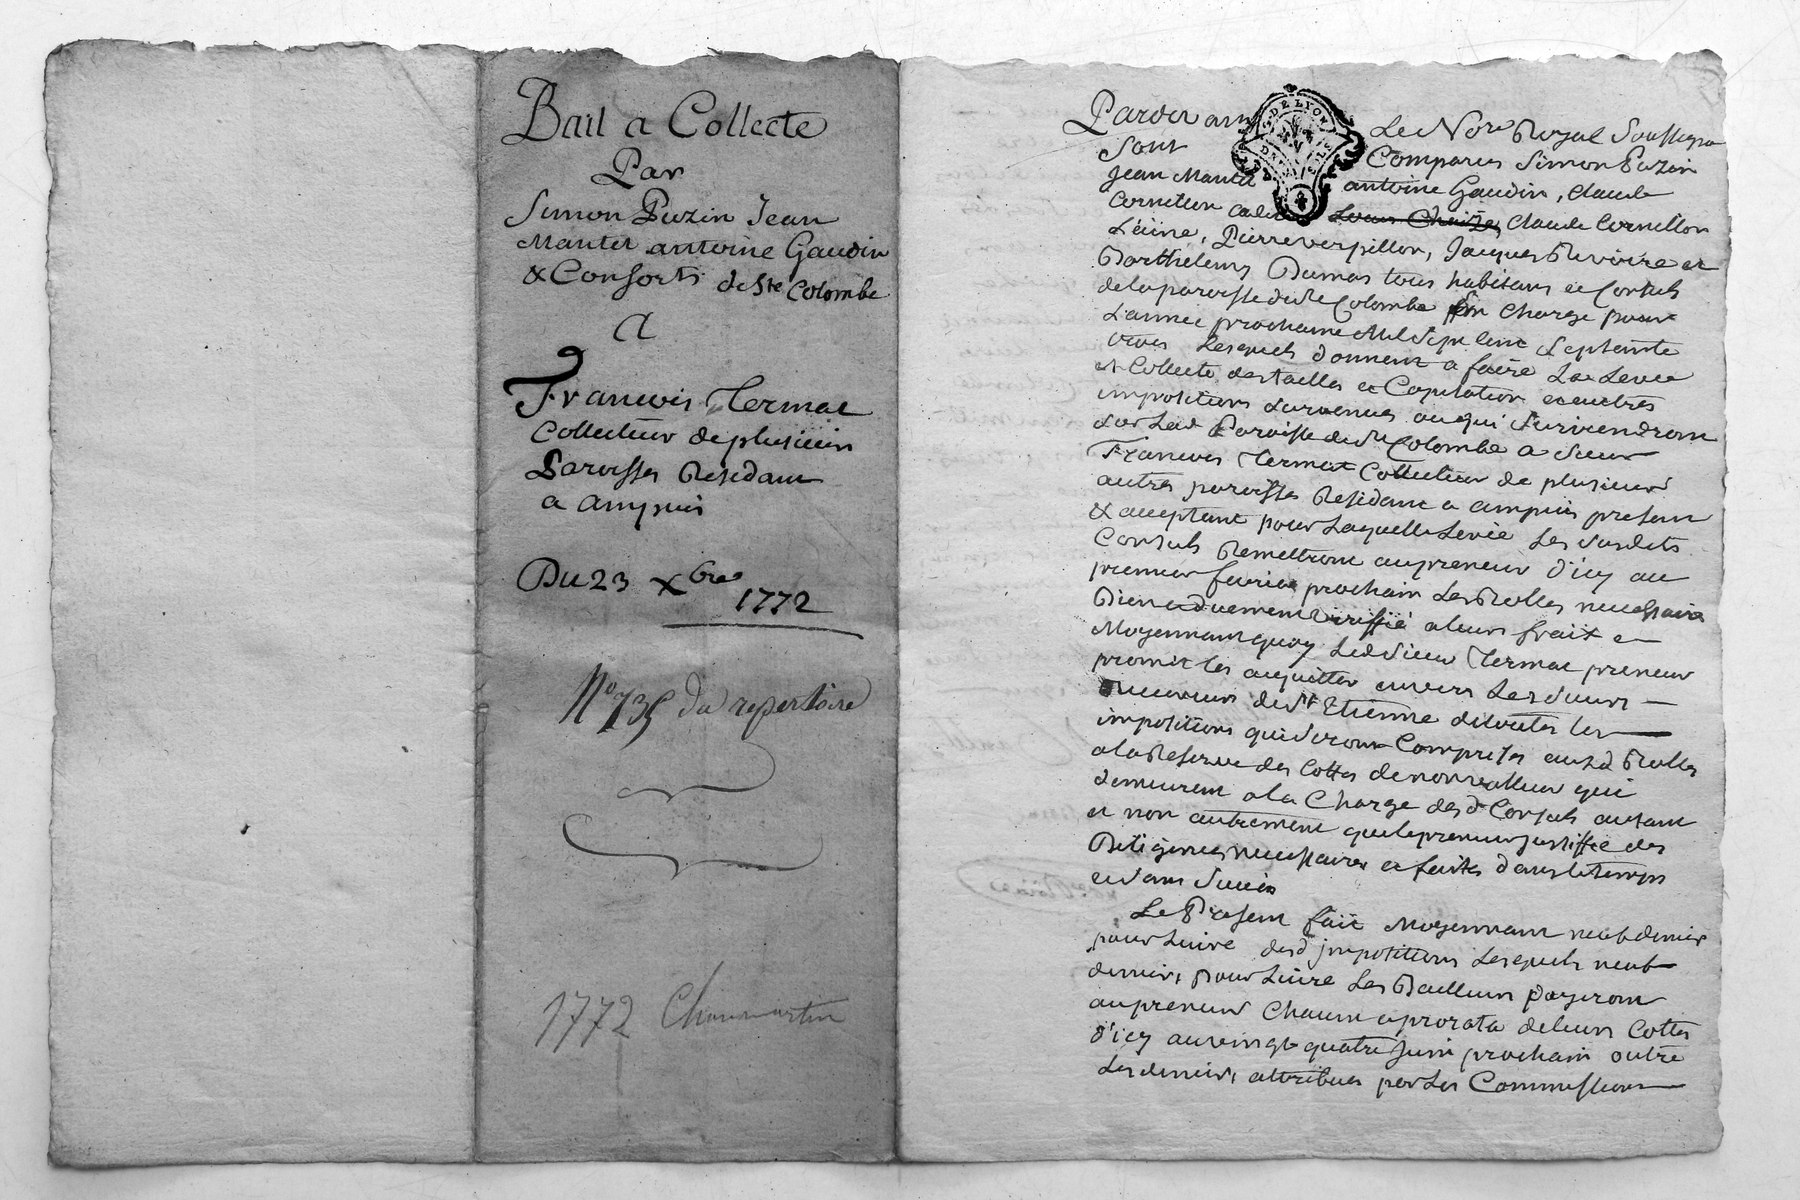 Bail a Collecte
Par
Simon Puzin Jean
Mantet antoine Gaudin
& Consorts de Ste Colombe
A
Francois Termat
Collecteur de plusieurs
Paroisses Residant
a ampuis
Du 23 Xbre
1772
No 735 du repertoire
1772 Chaumartin
DE LYON
Pardevant Le Nore Royal Soussigné
Sont Comparus Simon Puzin
Jean Mantet antoine Gaudin, claude
Cornillon cadet Louis Chaize, claude Cornillon
L'ainé, Pierre verpillon, Jacques Revoire et
Barthelemy Dumas tous habitans et Consuls
de la paroisse de Ste Colombe en Charge pour
L'année prochaine Mil Sept Cent Septente
trois Lesquels donnent a faire La Levée
et Collecte des tailles et Capitation et autres
impositions survenues ou qui surviendront
sur Lad Paroisse de Ste Colombe a Sieur
Francois Termat Collecteur de plusieurs
autres paroisses Residant a ampuis present
& acceptant pour Laquelle Levée Les susdits
Consuls Remettront au preneur d'icy au
premier fevrier prochain Les Rolles necessaire
Bien et duement veriffié a leurs frait et
Moyennant quoy Led Sieur Termat preneur
promet les acquitter envers Les Sieurs
Receveurs de St Etienne de toutes les
impositions qui seront Comprises auxd Rolles
a la Reserve des Cottes de non valleur qui
demeurent a la Charge desd Consuls autant
et non autrement que le preneur justiffie des
Diligences necessaires et faites dans le temps
et sans succés
Le Present fait Moyennant neuf denier
pour Livre desd impositions Lesquels neuf
deniers pour Livre Les Bailleurs payeront
au preneur Chacun a prorata de leurs Cottes
d'icy au vingt quatre Juin prochain outre
Les deniers attribues par Les Commissions